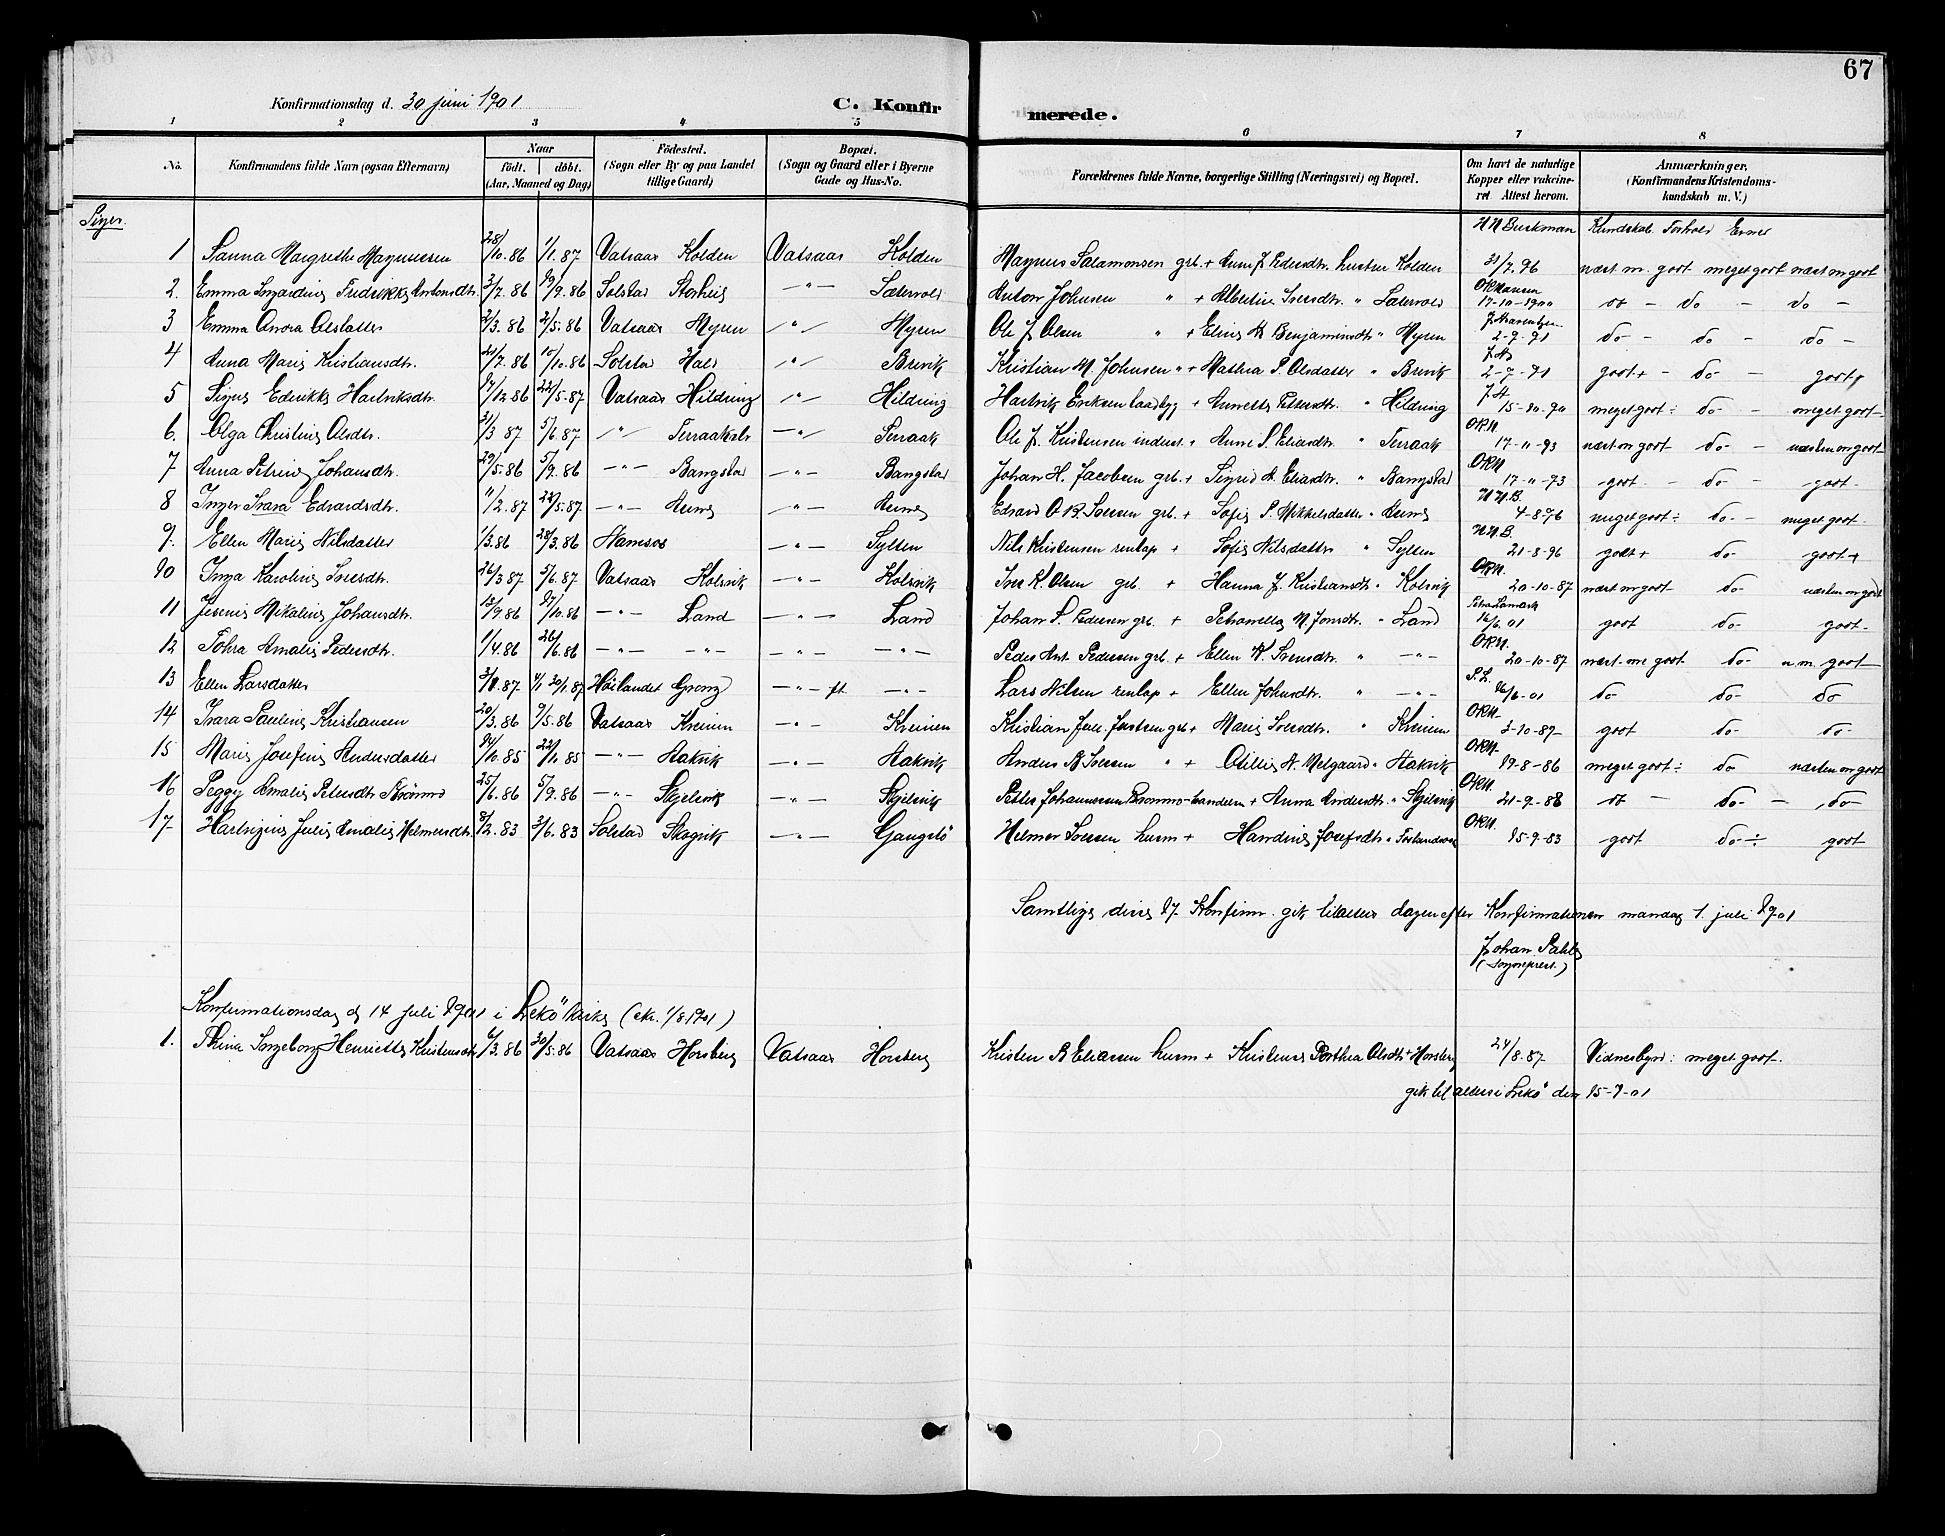 67
Konfirmationsdag d. 30 juni 1901
C. Konfirmerede.
1 2 3 4 5 6 7 8
No.
Konfirmandens fulde Navn (ogsaa Efternavn)
Naar
födt. döbt.
(Aar, Maaned og Dag)
Födested.
(Sogn eller By og paa Landet
tillige Gaard)
Bopæl.
(Sogn og Gaard eller i Byerne
Gade og Hus-No.
Forældrenes fulde Navne, borgerlige Stilling (Næringsvei) og Bopæl.
Om havt de naturlige
Kopper eller vakcine-
ret Attest herom.
Anmærkninger,
(Konfirmandens Kristendoms-
kundskab m. V.)
Piger.
Kundskab. Forhold Evner
1 Sanna Margrethe Magnussen 28/10.86 1/1.87 Vatsaas Kolden Vatsaas Kolden Magnus Salamonsen grb. + Anne J. Pedersdtr. hustru Kolden 31/7.96 næst m. godt meget godt næst m godt
2. Emma Fredrikke Antonsdtr. 3/7.86 19/9.86 Solstad Storheig —"— Sætervold Anton Johnsen " + Albertine Iversdtr. " Sætervold 17-10-1900 do — do — do —
3 Emma Olsdatter 2/3.86 2/5.86 Vatsaas Myren —"— Myren Ole J. Olsen " + Benjaminsdtr " Myren 2-9-91 do — do — do —
4 Anna Marie Kristiansdtr. 21/7.86 10/10.86 Solstad Hals —"— Brevik Kristian M. Johnsen " + Mathea P. Olsdatter " Brevik 2-7-91 godt + — do — godt +
5 17/12.86 22/5.87 Vatsaas Hildring —"— Hildring Eriksen + Annette Pettersdtr. " Hildring 15-10-90 meget godt ÷ do — meget godt —
6. Olga Christine Olsdtr. 31/3 87 5/6.87 —"— —"— Terraak Ole J. Kristensen inderst. + Anne S. Eliasdtr. " Terraak O.K.N. 17-11-93 næst m godt — do — næsten m godt —
7 Anna Petrine Johansdtr. 29/5.86 5/9.86 —"— Bangstad —"— Bangstad Johan H. Jacobsen grb. + Sigrid A. Eliasdtr. " Bangstad O.K.N. 17-11-93 godt — do — godt —
8 Inger Edvardsdtr. 11/2.87 22/5.87 —"— Aunes —"— Aunes Edvard O.B. Iversen grb. + Sofie P. Mikkelsdatter " Aunes H.N.B. 4-8-96 meget godt ÷ do — meget godt.
9. Ellen Marie Nilsdatter 1/3.86 28/3.86 Namsos —"— Sylten Nils Kristensen renlap + Sofie Nilsdatter " Sylten H.N.B. 21-8-96 godt + do — godt +
10 Inga Karoline Iversdtr. 26/3 87 5/6.87 Vatsaas Kolsvik —"— Kolsvik Iver K. Olsen grb. + Hanna J. Kristiansdtr " Kolsvik O.K.N. 20-10-87 næst m godt — do — næsten m godt
11 Mikaline Johansdtr. 13/9.86 17/10.86 —"— Land —"— Land Johan S. Pedersen grb. + Petronella M. Jonsdtr. " Land 16/6.01 godt do — godt —
12 Tohra Amalie Pedersdtr. 1/4.86 26/6.86 —"— —"— —"— —"— Peder Ant. Pedersen grb. + Ellen K. Svensdtr. " —"— O.K.N. 20-10-87 næst m godt do — n m. godt —
13 Ellen Larsdatter Höilandet Grong —"— ft —"— Lars Nilsen renlap + Ellen Johnsdtr. " —"— 16/6-01 do do — do
14 Pauline Kristiansen 20/3.86 9/5.86 Vatsaas —"— Kristian grb + Marie Iversdtr. " O.K.N. 3-10-87 godt do — do —
15 Marie Josefine Andersdatter 14/10.85 22/11 85 —"— Hakvik —"— Hakvik Anders B. Iversen " + Otillie N. Melgaard " Hakvik O.K.N. 19-8-86 meget godt ÷ do næsten m godt
16 Peggy Amalie Petersdtr Brömmo 25/6.86 5/9.86 —"— Skjelvik —"— Skjelvik Petter Johannessen Brommo + Anna Andersdtr. " Skjelvik O.K.N. 21-9-88 do — do — do —
17 Julie Amalie Helmersdtr. 8/2.83 3/6.83 Solstad Skogvik —"— Gangstö Helmer Iversen husm + Josefsdtr " O.K.N. 15-9-83 godt do ÷ godt
Samtlige disse 17 Konfirm. gik til alters dagen efter Konfirmationen mandag 1. juli 1901
Johan
(Sogneprest.)
Konfirmationsdag d. 14 juli 1901 i Lekö Kirke (1/8 1901)
1. Thina Ingeborg Henriette Kristensdtr 6/3.86 30/5.86 Vatsaas Horsberg Vatsaas Horsberg Kristen B. Eliassen husm + Olsdtr " Horsberg 24/8.87 Vidnesbyrd: meget godt.
gik til alters i Lekö den 15-7-01